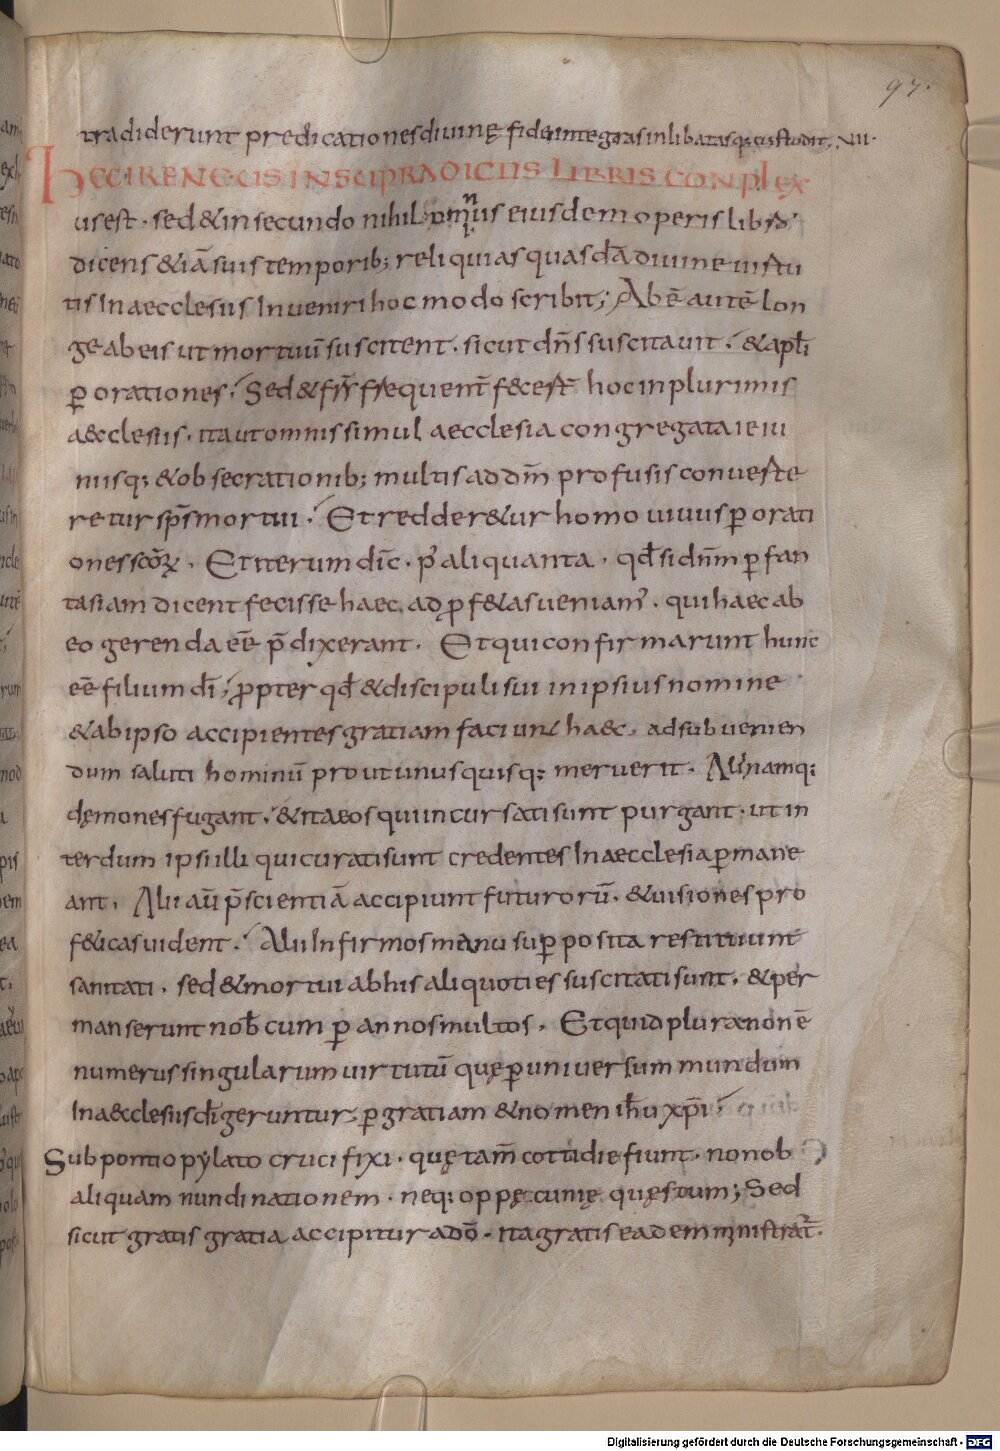 97.
tradiderunt predicationes diuinę fidei integras inlibatasq; custodit. VII.
HEC IRENEUS IN SUPRADICTIS LIBRIS CONPLEX
us est. sed & in secundo nihil minus eiusdem operis libro
dicens & iā suis temporib; reliquias quasdā diuine uirtu
tis In aecclesiis Inueniri hoc modo scribit; Abē autē lon
ge ab eis ut mortuū suscitent. sicut dn̄s suscitauit. & apl̄i
ꝑ orationes. Sed & fr̄s frequent̄ f&cest hoc in plurimis
a&clesiis. ita ut omnis simul aecclesia congregata ieiu
niisq; & obsecrationib; multis ad dm̄ profusis conuerte
retur sp̄s mortui. Et redder&ur homo uiuus ꝑ orati
ones sc̄oꝝ. Et iterum dīc. p' aliquanta. qd̄ si dn̄m ꝑ fan
tasiam dicent fecisse haec. ad ꝓf&as ueniam'. qui haec ab
eo gerenda eē p̄dixerant. Et qui confirmarunt hunc
eē filium dī; ꝓpter qd̄ & discipuli sui in ipsius nomine
& ab ipso accipientes gratiam faciunt ha&c. ad subuenien
dum saluti hominū prout unusquisq; meruerit. Alii namq;
dęmones fugant. & ita eos qui incursati sunt purgant. ut in
terdum ipsi illi qui curati sunt credentes In aecclesia ꝑmane
ant. Alii aū p̄scientiā accipiunt futurorū. & uisiones pro
f&icas uident. Alii Infirmos manu suꝑposita restituunt
sanitati. sed & mortui ab his aliquoties suscitati sunt. & per
manserunt nob̄cum ꝑ annos multos. Et quid plura non ē
numerus singularum uirtutū quę ꝑ uniuersum mundum
In a&clesiis dī geruntur. ꝑ gratiam & nomen ih̄u xp̄i
Sub pontio pẏlato crucifixi. quę tam̄ cottidie fiunt. non ob
aliquam nundinationem. neq; ob pęcunię quęstum; Sed
sicut gratis gratia accipitur a dō. ita gratis eadem ministrat̄.
Digitalisierung gefördert durch die Deutsche Forschungsgemeinschaft - DFG